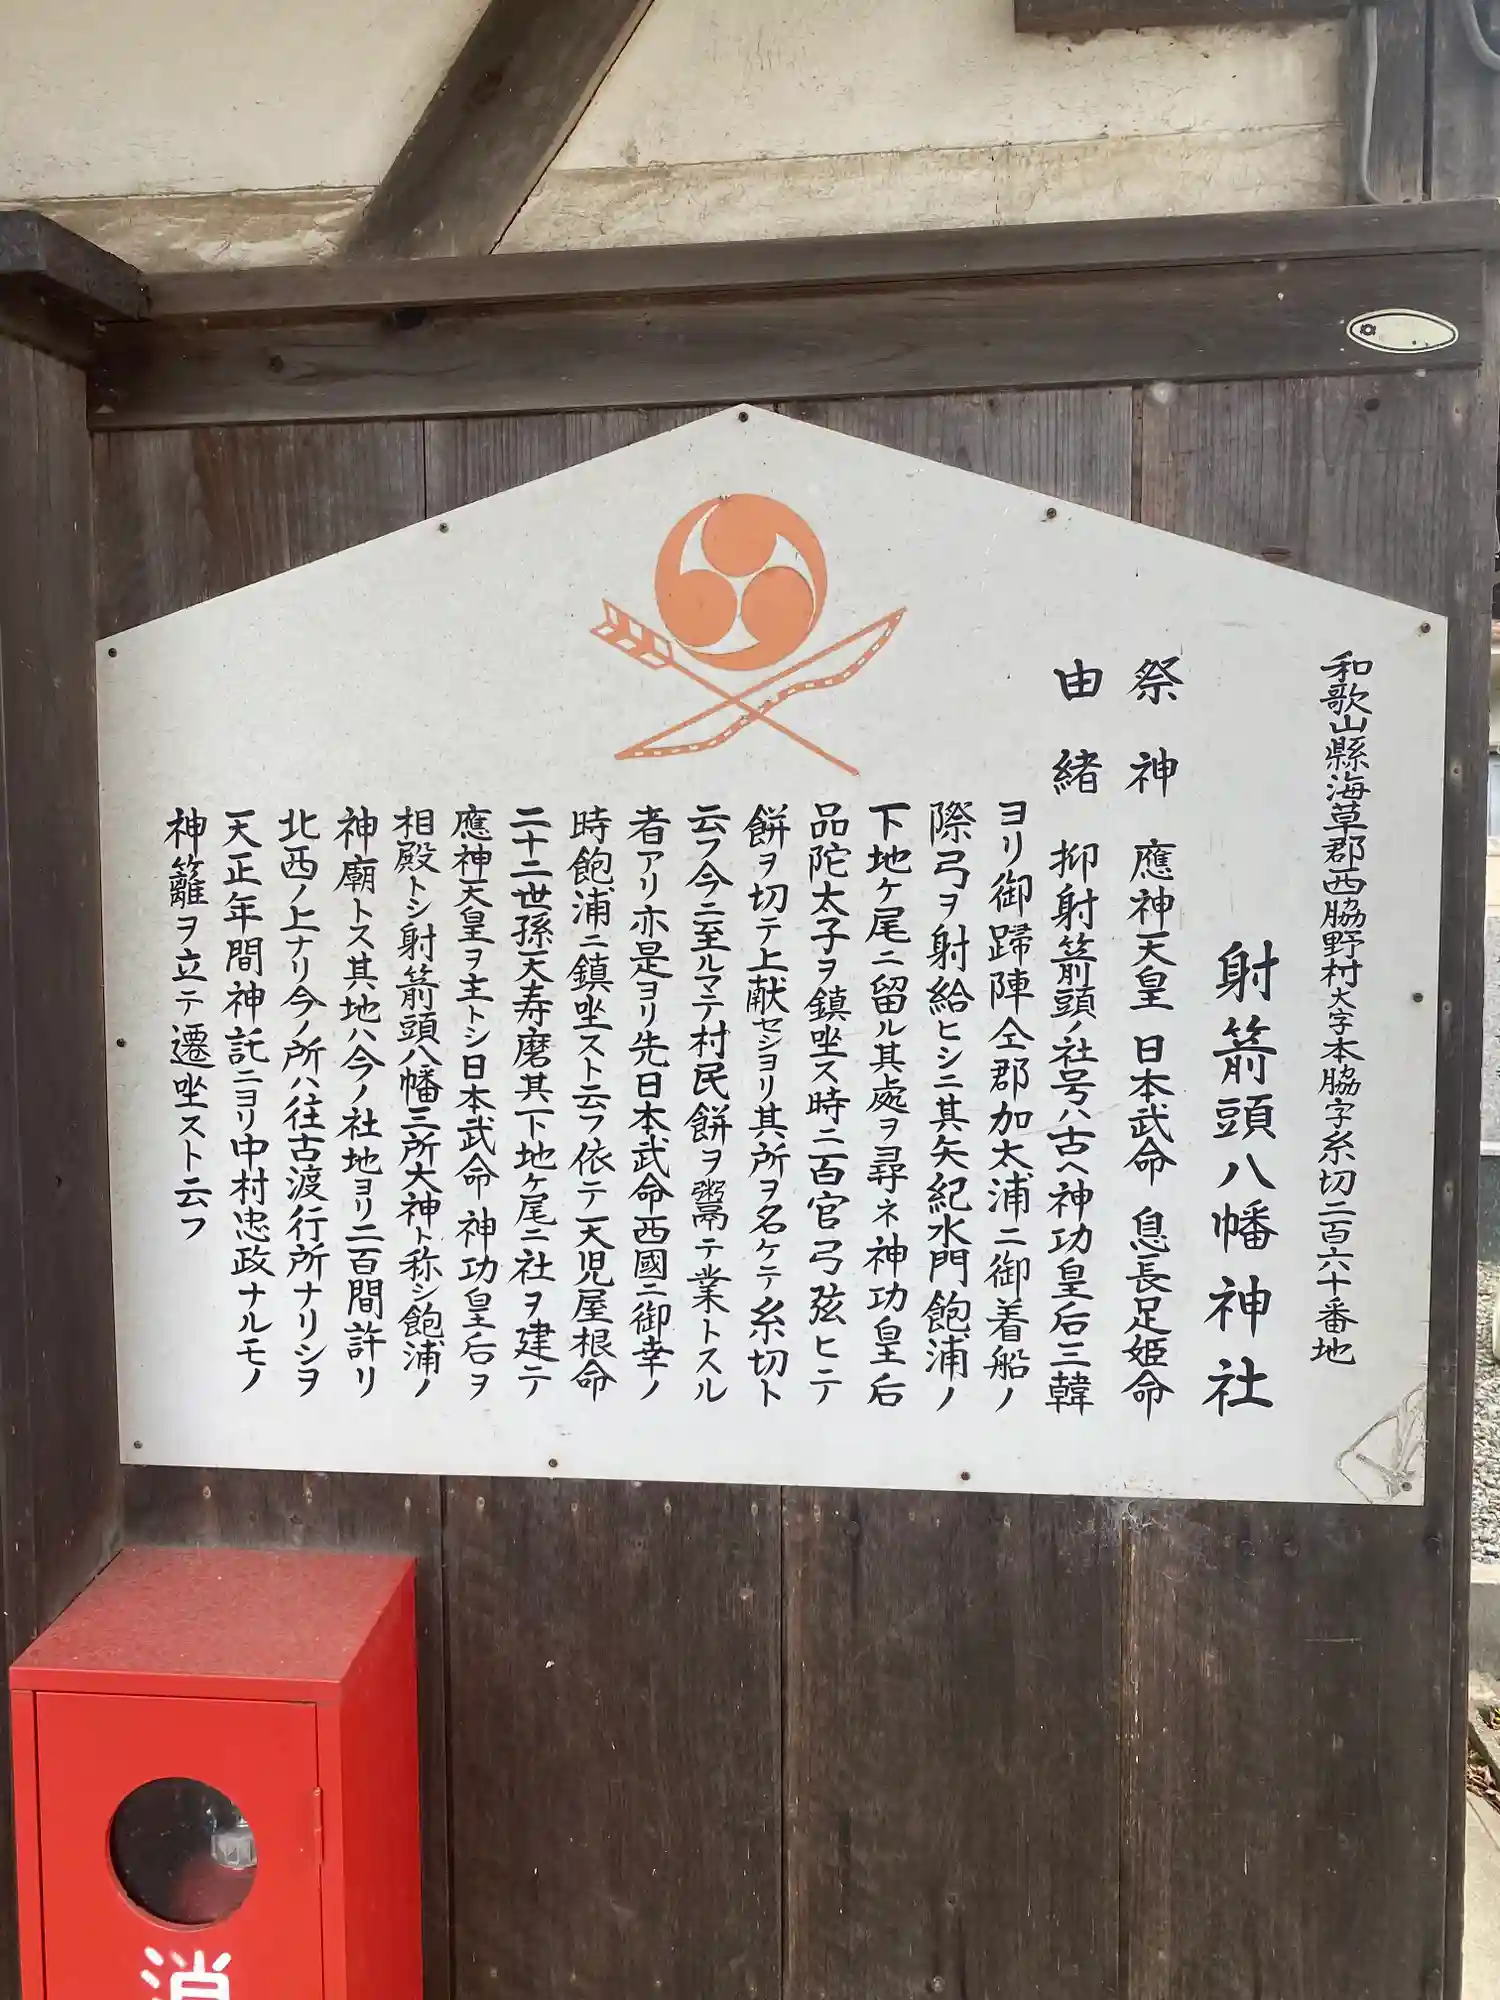 和歌山縣海草郡西脇野村大字本脇字糸切二百六十番地
射箭頭八幡神社
祭神 應神天皇 日本武命 息長足姫命
由緒 抑射箭頭ノ社号ハ古ヘ神功皇后三韓
ヨリ御歸陣仝郡加太浦ニ御着船ノ
際弓ヲ射給ヒシニ其矢紀水門飽浦ノ
下地ケ尾ニ留ル其處ヲ尋ネ神功皇后
品陀太子ヲ鎮坐ス時ニ百官弓弦ヒニテ
餅ヲ切テ上献セシヨリ其所ヲ名ケテ糸切ト
云フ今ニ至ルマテ村民餅ヲ粥鬲テ業トスル
者アリ亦是ヨリ先日本武命西國ニ御幸ノ
時飽浦ニ鎮坐スト云フ依テ天児屋根命
二十二世孫天寿磨其下地ケ尾ニ社ヲ建テ
應神天皇ヲ主トシ日本武命神功皇后ヲ
相殿トシ射箭頭八幡三所大神ト称シ飽浦ノ
神廟トス其地ハ今ノ社地ヨリ二百間許リ
北西ノ上ナリ今ノ所ハ往古渡行所ナリシヲ
天正年間神託ニヨリ中村忠政ナルモノ
神籬ヲ立テ遷坐スト云フ
消